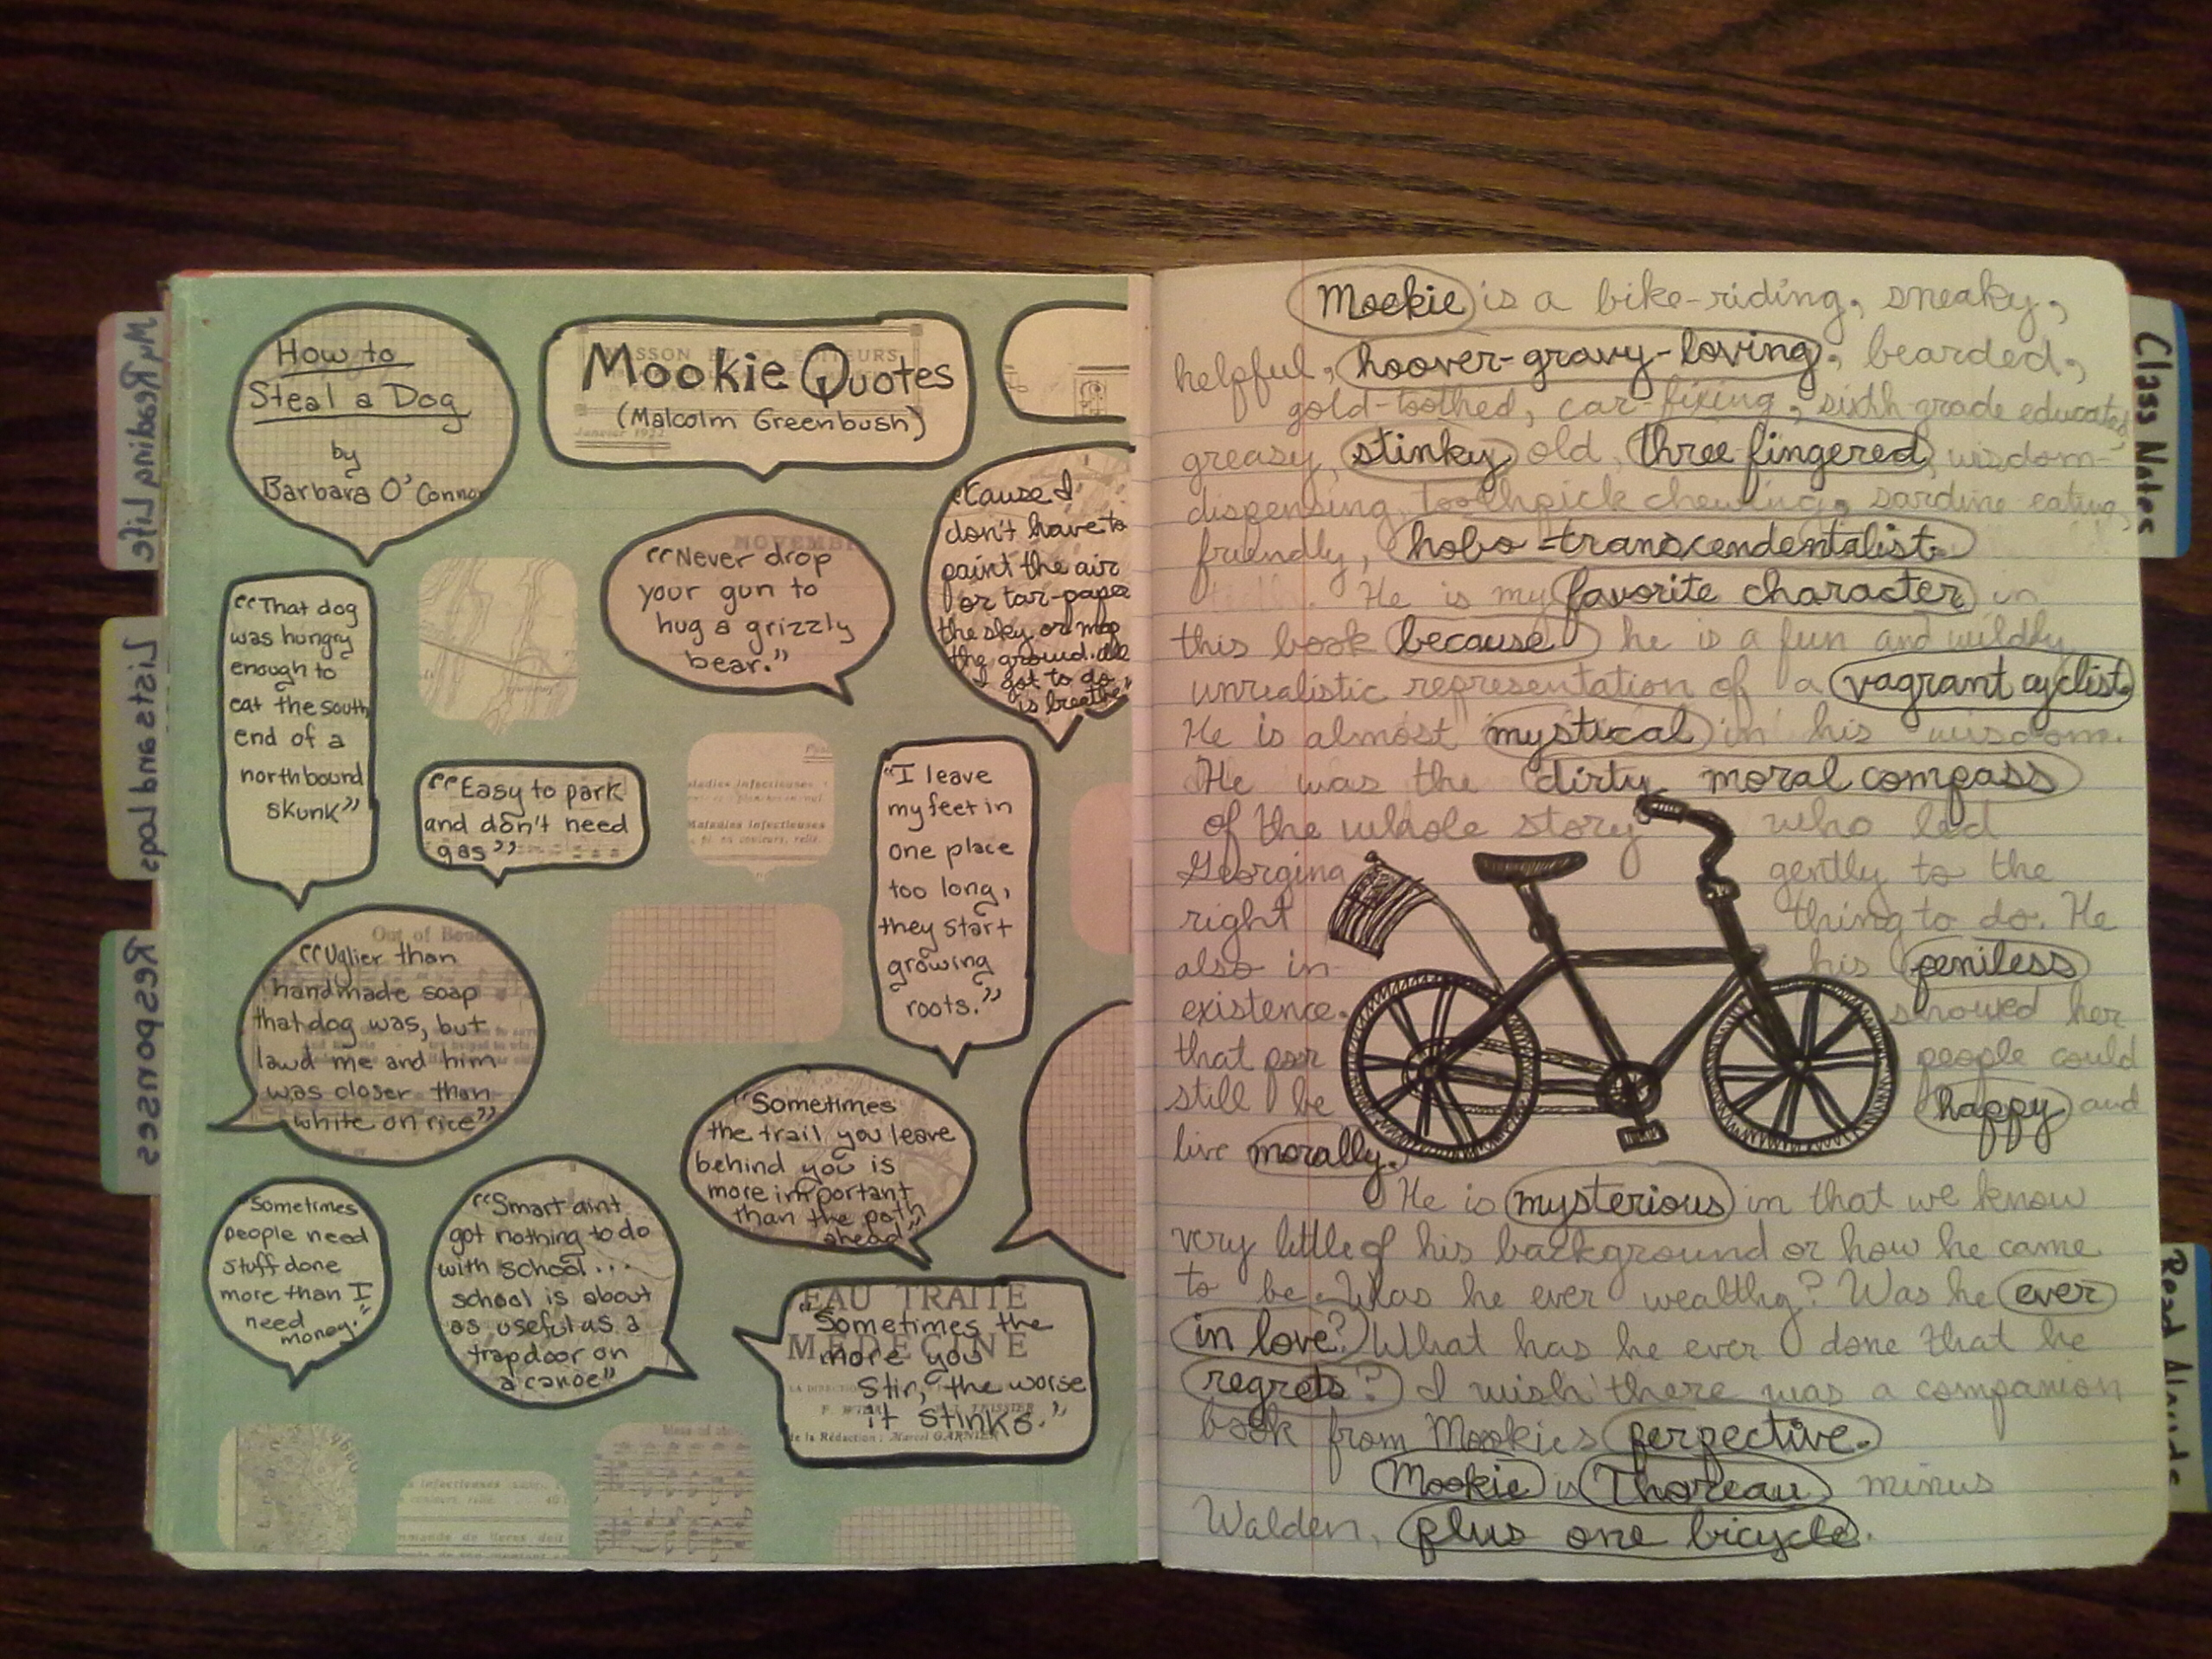 How to
Steal a Dog
by
Barbara O'Connor
Mookie Quotes
(Malcolm Greenbush)
"That dog
was hungry
enough to
eat the south
end of a
northbound
skunk"
"Never drop
your gun to
hug a grizzly
bear."
'Cause I
don't have to
paint the air
or tar-paper
the sky or mop
the ground. All
I got to do
is breathe"
"Easy to park
and don't need
gas"
"I leave
my feet in
one place
too long,
they start
growing
roots."
"Uglier than
handmade soap
that dog was, but
lawd me and him
was closer than
white on rice"
"Sometimes
the trail you leave
behind you is
more important
than the path
ahead"
"Sometimes
people need
stuff done
more than I
need
money."
"Smart aint
got nothing to do
with school...
school is about
as useful as a
trapdoor on
a canoe"
EAU TRAITE
MEDECINE
"Sometimes the
more you
Stir, the worse
it stinks."
de la Rédaction: Marcel GARNIER
My Reading Life
Lists and Loads
Responses
Mookie is a bike-riding, sneaky,
helpful, hoover-gravy-loving, bearded,
gold-toothed, car-fixing, sixth-grade educated,
greasy, stinky old, three fingered, wisdom-
dispensing, toothpick chewing, sardine-eating,
friendly, hobo-transcendentalist.
He is my favorite character in
this book because he is a fun and wildly
unrealistic representation of a vagrant cyclist.
He is almost mystical in his wisdom.
He was the dirty moral compass
of the whole story who led
Georgina gently to the
right thing to do. He
also in his peniless
existence showed her
that poor people could
still be happy and
live morally.
He is mysterious in that we know
very little of his background or how he came
to be. Was he ever wealthy? Was he ever
in love? What has he ever done that he
regrets? I wish there was a companion
book from Mookies perpective.
Mookie is Thoreau minus
Walden, plus one bicycle.
Class Notes
Read Alouds